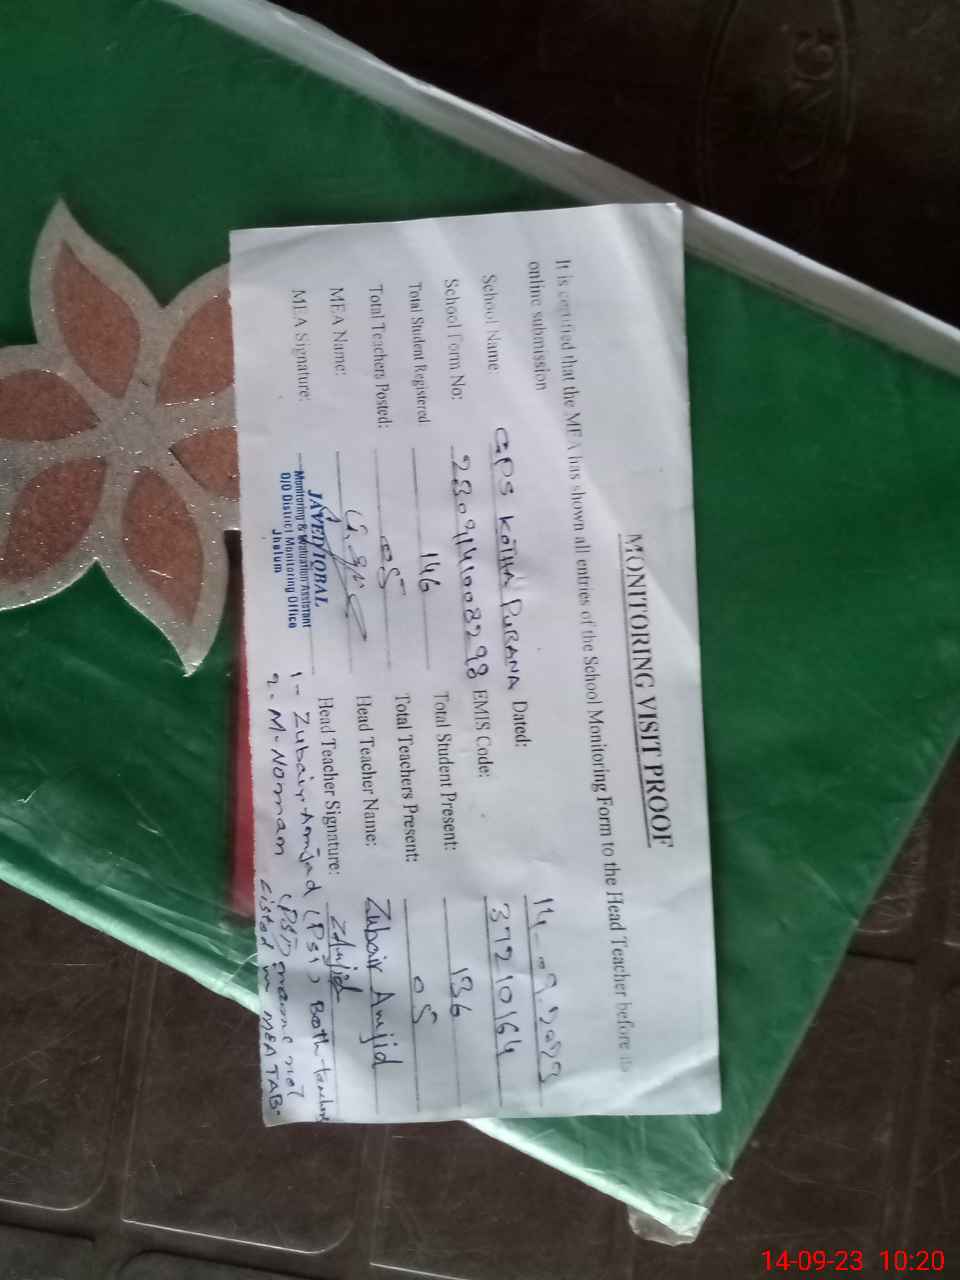 MONITORING VISIT PROOF
It is certified that the MEA has shown all entries of the School Monitoring Form to the Head Teacher before its
online submission
School Name: GPS KOTHA PURANA Dated: 14-09-2023
School Form No: EMIS Code: 37210164
Total Student Registered: 146 Total Student Present: 136
Total Teachers Posted: 05 Total Teachers Present: 05
MEA Name: Head Teacher Name: Zubair Amjid
MEA Signature: Head Teacher Signature: ZAmjid
JAVED IQBAL
Monitoring & Evaluation Assistant
O/O District Monitoring Office
Jhelum
1- Zubair Amjad (PST) Both teachers
2- M. Noman (PST) name not
listed in MEA TAB.
14-09-23 10:20